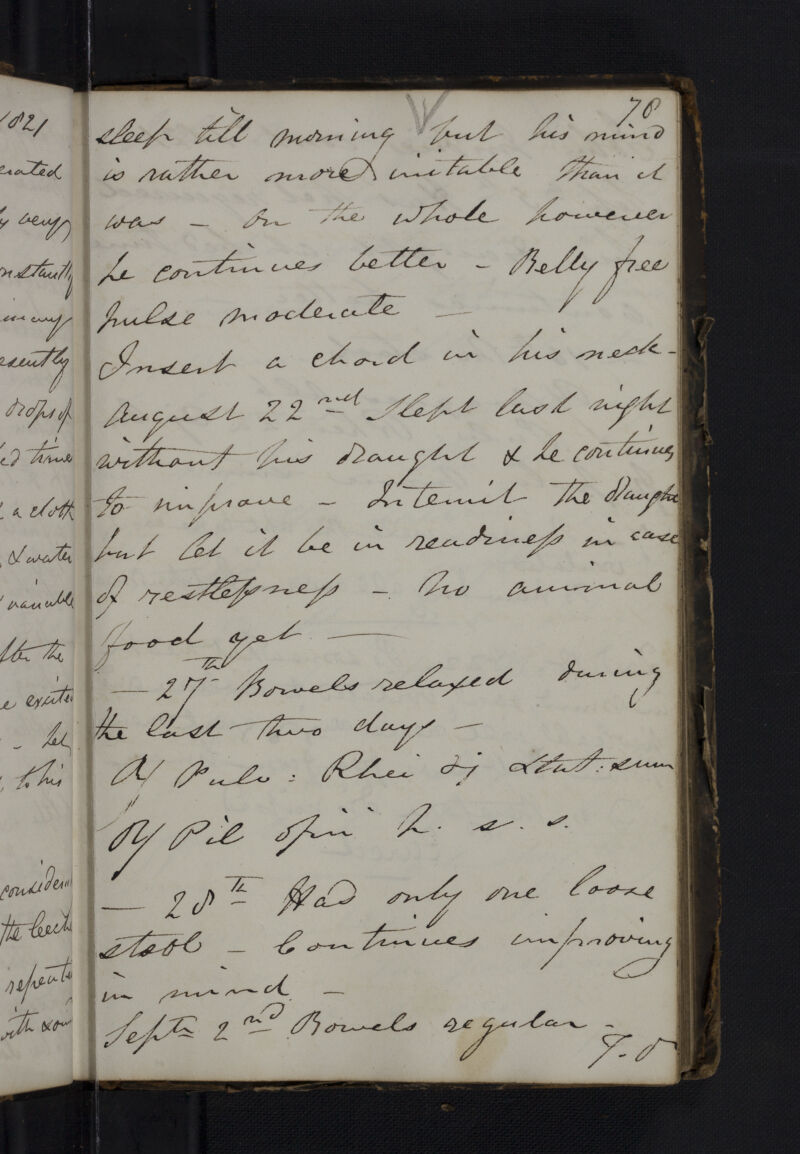 78
sleep till morning but his mind
is rather more irritable than it
was – on the whole however
he continues better – Belly free
pulse moderate –
Insert a chord in his neck –
August 22nd Slept last night
without his draught & he continues
to improve – Intermit the draught
but let it be in readiness in case
of restlessness – No animal
food yet —
— 27th Bowels relaxed during
the last two days –
℞ Pulv: Rhei ʒj stat: sum
℞ Pil opii h. s. s.
— 28th Had only one loose
stool – Continues improving
in mind –
Septr 2nd Bowels regular –
1821
erated
very
nstantly
esently
drops of
ed time
a cloth
& water
variable
fter the
e excited
to his
consider
the leech
repeated